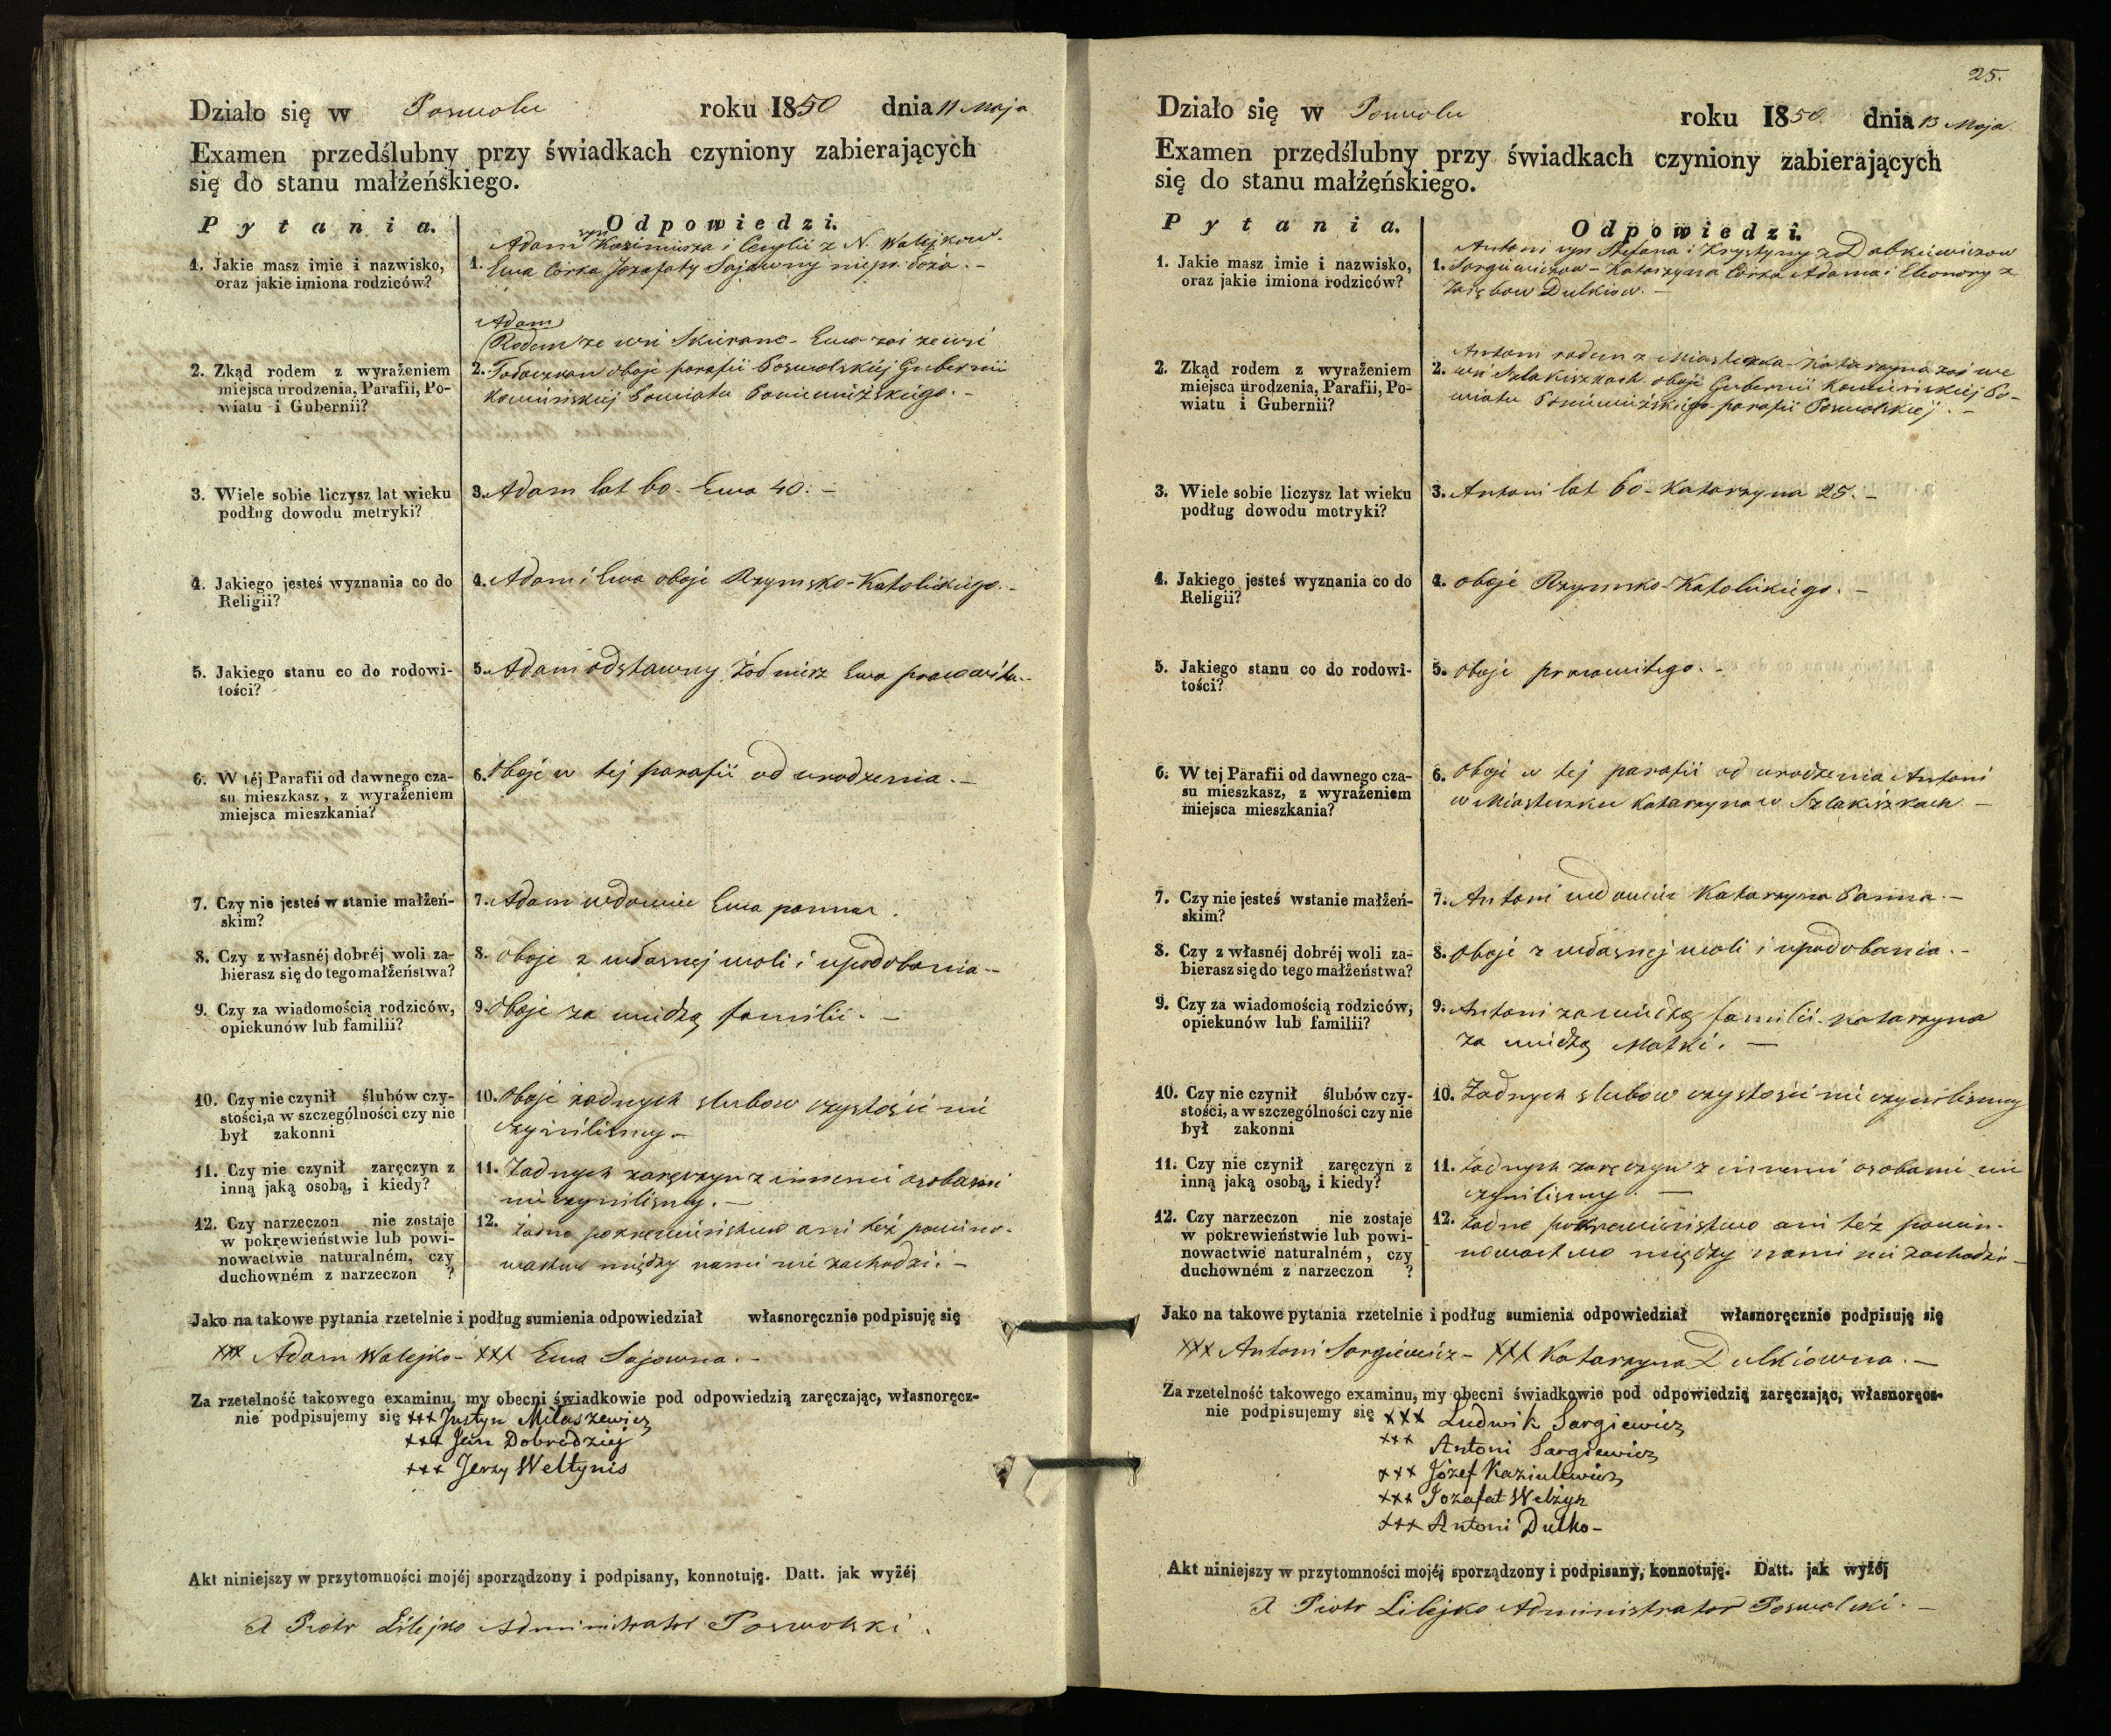 Działo się w Poswolu roku 1850 dnia 11 Maja
Examen przedślubny przy świadkach czyniony zabierających
się do stanu małżeńskiego.
Pytania. Odpowiedzi.
1. Jakie masz imie i nazwisko,
oraz jakie imiona rodziców?
Adam syn Kazimierza i Cecylii z N. Walejkow.
1. Ewa Córka Jozafaty Sajowny niepr. łoża. –
2. Zkąd rodem z wyrażeniem
miejsca urodzenia, Parafii, Po-
wiatu i Gubernii?
Adam
Rodem ze wsi Skierane - Ewa zaś ze wsi
2. oboje parafii Poswolskiej Gubernii
Kowieńskiej Powiatu Poniewiżskiego. –
3. Wiele sobie liczysz lat wieku
podług dowodu metryki?
3. Adam lat 60. Ewa 40. –
4. Jakiego jesteś wyznania co do
Religii?
4. Adam i Ewa oboje Rzymsko-Katolickiego. –
5. Jakiego stanu co do rodowi-
tości?
5. Adam odstawny żołnierz Ewa pracowita. –
6. W téj Parafii od dawnego cza-
su mieszkasz, z wyrażeniem
miejsca mieszkania?
6. Oboje w tej parafii od urodzenia. –
7. Czy nie jesteś w stanie małżeń-
skim?
7. Adam wdowiec Ewa panna.
8. Czy z własnéj dobréj woli za-
bierasz się do tego małżeństwa?
8. Oboje z własnej woli i upodobania –
9. Czy za wiadomością rodziców,
opiekunów lub familii?
9. Oboje za wiedzą familii. –
10. Czy nie czynił ślubów czy-
stości, a w szczególności czy nie
był zakonni
10. Oboje żadnych slubow czystości nie
czynilismy –
11. Czy nie czynił zaręczyn z
inną jaką osobą, i kiedy?
11. Żadnych zaręczyn z innemi osobami
nie czynilismy. –
12. Czy narzeczon nie zostaje
w pokrewieństwie lub powi-
nowactwie naturalném, czy
duchowném z narzeczon ?
12. Żadne pokrewieństwo ani też powino-
wactwo między nami nie zachodzi. –
Jako na takowe pytania rzetelnie i podług sumienia odpowiedział własnoręcznie podpisuję się
xxx Adam Walejko – xxx Ewa Sajowna. –
Za rzetelność takowego examinu, my obecni świadkowie pod odpowiedzią zaręczając, własnoręcz-
nie podpisujemy się xxx Justyn Milaszewicz
xxx Jan Dobrodziej
xxx Jerzy Weltynis
Akt niniejszy w przytomności mojéj sporządzony i podpisany, konnotuję. Datt. jak wyżéj
X Piotr Lilejko Administrator Poswolski.
25.
Działo się w Poswolu roku 1850 dnia 13 Maja.
Examen przedślubny przy świadkach czyniony zabierających
się do stanu małżeńskiego.
Pytania. Odpowiedzi.
1. Jakie masz imie i nazwisko,
oraz jakie imiona rodziców?
Antoni syn Stefana i Krystyny z Dabkiewiczow
1. Sargiewiczow – Katarzyna Córka Adama i Eleonory z
Zarębow Dulkiow. –
2. Zkąd rodem z wyrażeniem
miejsca urodzenia, Parafii, Po-
wiatu i Gubernii?
Antoni rodem z Miasteczka – Katarzyna zaś we
2. wsi Szlakiszkach oboje Gubernii Kowieńskiej Po-
wiatu Poniewiżskiego parafii Poswolskiej. –
3. Wiele sobie liczysz lat wieku
podług dowodu metryki?
3. Antoni lat 60 – Katarzyna 25. –
4. Jakiego jesteś wyznania co do
Religii?
4. Oboje Rzymsko-Katolickiego. –
5. Jakiego stanu co do rodowi-
tości?
5. Oboje pracowitego. –
6. W tej Parafii od dawnego cza-
su mieszkasz, z wyrażeniem
miejsca mieszkania?
6. Oboje w tej parafii od urodzenia Antoni
w Miasteczku Katarzyna w Szlakiszkach –
7. Czy nie jesteś wstanie małżeń-
skim?
7. Antoni wdowiec Katarzyna Panna. –
8. Czy z własnéj dobréj woli za-
bierasz się do tego małżeństwa?
8. Oboje z własnej woli i upodobania. –
9. Czy za wiadomością rodziców,
opiekunów lub familii?
9. Antoni za wiedzą familii. Katarzyna
za wiedzą Matki. –
10. Czy nie czynił ślubów czy-
stości, a w szczególności czy nie
był zakonni
10. Żadnych slubow czystości nie czynilismy
11. Czy nie czynił zaręczyn z
inną jaką osobą, i kiedy?
11. Żadnych zaręczyn z innemi osobami nie
czynilismy. –
12. Czy narzeczon nie zostaje
w pokrewieństwie lub powi-
nowactwie naturalném, czy
duchowném z narzeczon ?
12. Żadne pokrewieństwo ani też powin-
nowactwo między nami nie zachodzi –
Jako na takowe pytania rzetelnie i podług sumienia odpowiedział własnoręcznie podpisuję się
xxx Antoni Sargiewicz – xxx Katarzyna Dulkiowna. –
Za rzetelność takowego examinu, my obecni świadkowie pod odpowiedzią zaręczając, własnoręcz-
nie podpisujemy się xxx Ludwik Sargiewicz
xxx Antoni Sargiewicz
xxx Józef Kaziulewicz
xxx Jozafat Welżyk
xxx Antoni Dulko –
Akt niniejszy w przytomności mojéj sporządzony i podpisany, konnotuję. Datt. jak wyżéj
X Piotr Lilejko Administrator Poswolski. –